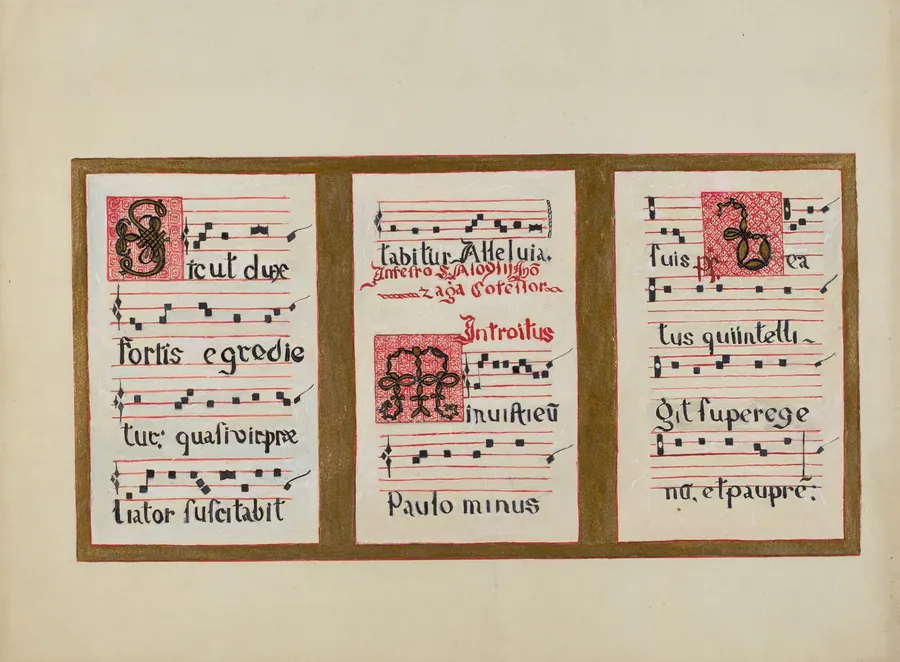 Sicut dux
fortis egredie
tur: quasi vir præ
liator ſuſcitabit
tabitur Alleluia.
zaga Cōfeſſor
Introitus
Minuiſti eū
Paulo minus
ſuis ps. Bea
tus qui intelli-
git ſuper ege
nū, et pauprē: